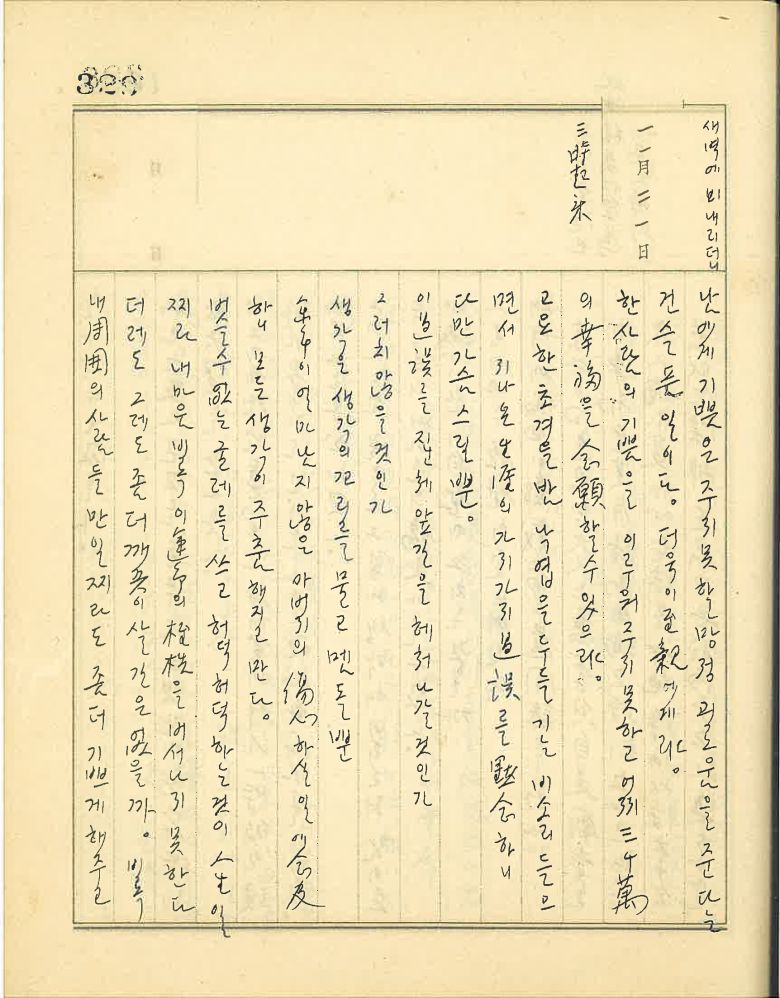 326
새벽에 비 내리더니
一一月 二一日
三時起床
남에게 기쁨은 주지 못할 망정 괴로움을 준다는
건 슬픈 일이다. 더욱이 至親에게랴.
한 사람의 기쁨을 이루워 주지 못하고 어찌 三千萬
의 幸福을 念願할 수 있으랴.
고요한 초겨울 밤 낙엽을 두들기는 비소리 들으
면서 지나온 生涯의 가지가지 過誤를 黙念하니
다만 가슴 스릴 뿐.
이 過誤를 질머지고 앞길을 헤쳐나갈 것인가
그러치 않을 것인가
생각은 생각의 꼬리를 물고 멤돌 뿐
余年이 얼마 남지 않은 아버지의 傷心하실 일에 念及
하니 모든 생각이 주춤해지고 만다.
벗을 수 없는 굴레를 쓰고 허덕허덕하는 것이 人生일
찌라 내 마음 비록 이 運命의 桎梏을 버서나지 못한다
더레도 그레도 좀 더 깨끗이 살 길은 없을까. 비록
내 周囲의 사람들만일찌라도 좀 더 기쁘게 해주고